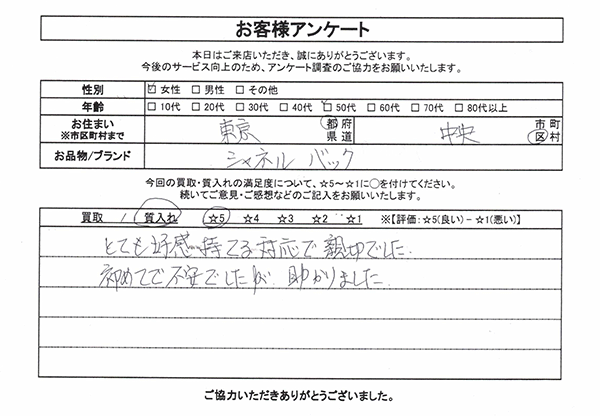 お客様アンケート
本日はご来店いただき、誠にありがとうございます。
今後のサービス向上のため、アンケート調査のご協力をお願いいたします。
性別 ☑ 女性 □ 男性 □ その他
年齢 □ 10代 □ 20代 □ 30代 □ 40代 ☑ 50代 □ 60代 □ 70代 □ 80代以上
お住まい ※市区町村まで 東京 都 府 県 道 中央 市 町 区 村
お品物/ブランド シャネル バック
今回の買取・質入れの満足度について、☆5～☆1に○を付けてください。
続いてご意見・ご感想などのご記入をお願いいたします。
買取 / 質入れ ☆5 ☆4 ☆3 ☆2 ☆1 ※【評価:☆5(良い)－☆1(悪い)】
とても好感持てる対応で親切でした.
初めてで不安でしたが、助かりました.
ご協力いただきありがとうございました。